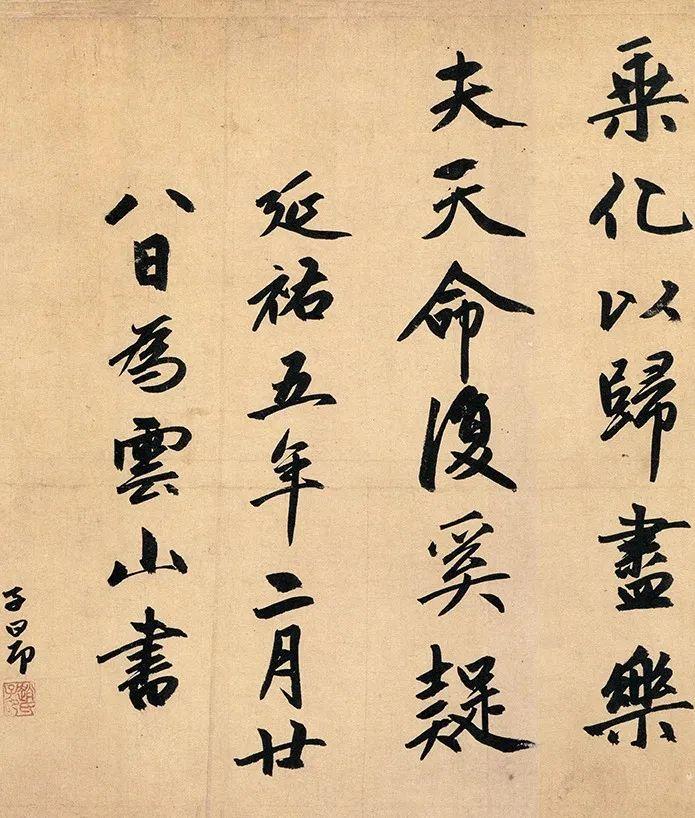 乘化以歸盡樂
夫天命復奚疑
延祐五年二月廿
八日為雲山書
子昂
趙氏子昂